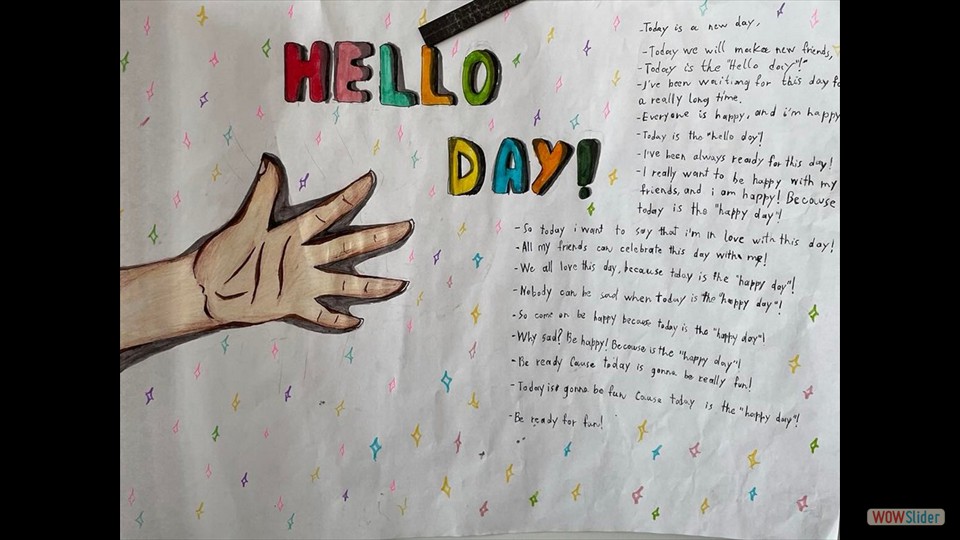 HELLO
DAY!
-Today is a new day,
-Today we will make new friends,
-Today is the "Hello day"!
-I've been waiting for this day fo
a really long time.
-Everyone is happy, and i'm happy
-Today is the "hello day"!
-I've been always ready for this day!
-I really want to be happy with my
friends, and i am happy! Because
today is the "happy day"!
-So today i want to say that i'm in love with this day!
-All my friends can celebrate this day with me!
-We all love this day, because today is the "happy day"!
-Nobody can be sad when today is the "happy day"!
-So come on be happy because today is the "happy day"!
-Why sad? Be happy! Because is the "happy day"!
-Be ready Cause today is gonna be really fun!
-Today is gonna be fun Cause today is the "happy day"!
-Be ready for fun!
WOWSlider